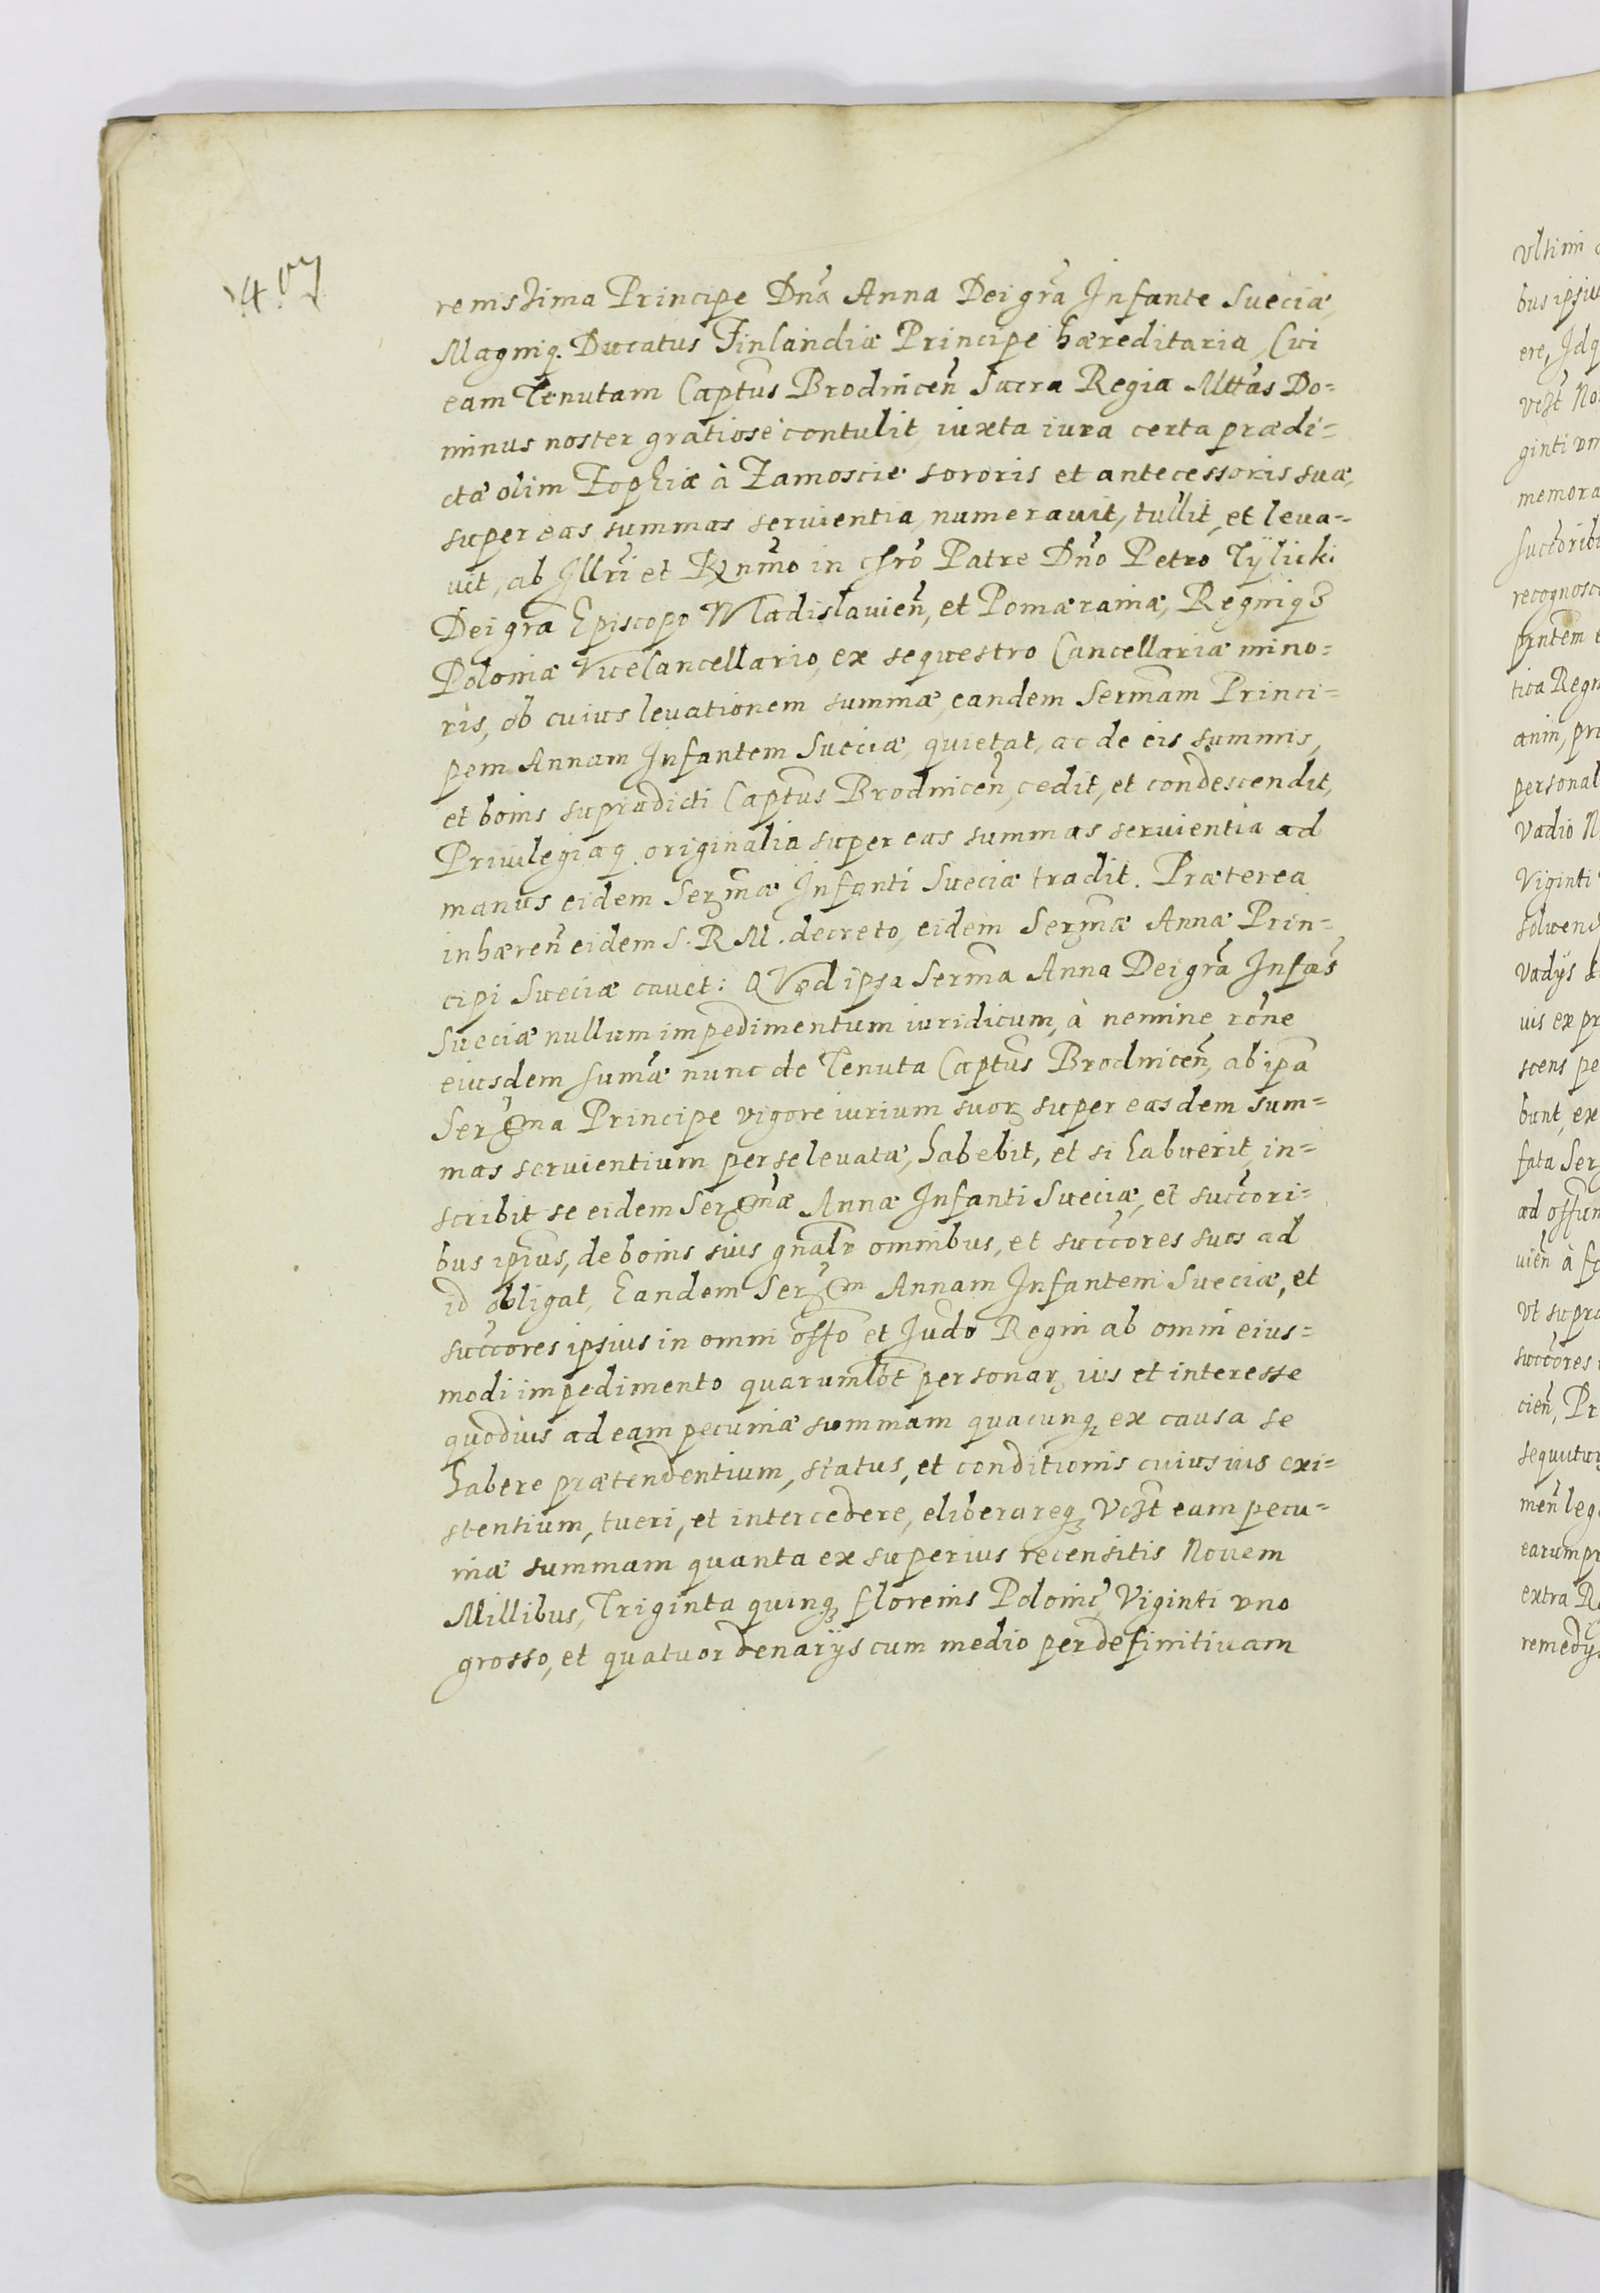 407
renissima Principe Dnã Anna Dei grã Infante Sueciæ,
Magniq. Ducatus Finlandiæ Principe hæreditaria, Cui
eam Tenutam Captus Brodnicen̄ Sacra Regia Mttas Do=
minus noster gratiosè contulit, iuxta iura certa prædi=
ctæ olim Zophiæ à Zamoscie sororis et antecessoris suæ,
super eas summas seruientia, numerauit, tullit, et leua=
uit, ab Illri et Rnmo in Chro Patre Dno Petro Tÿlicki
Dei grã Episcopo Wladislauien̄, et Pomæraniæ, Regniqз
Poloniæ ViceCancellario, ex sequestro Cancellariæ mino=
ris, ob cuius leuationem summæ, eandem Sermam Princi=
pem Annam Infantem Sueciæ, quietat, ac de eis summis,
et bonis supradicti Captus Brodnicen̄, cedit, et condescendit,
Priuilegiaq. originalia super eas summas seruientia ad
manus eidem Sermæ Infanti Sueciæ tradit. Præterea
inhæren̄ eidem S. R. M. decreto, eidem Sermæ Annæ Prin=
cipi Sueciæ cauet: QVod ipsa Serma Anna Dei grã Infãs
Sueciæ nullum impedimentum iuridicum, à nemine rone
eiusdem sumæ nunc de Tenuta Captus Brodnicen̄, ab ipa
Serma Principe vigore iurium suorz super easdem sum=
mas seruientium per se leuatæ, habebit, et si habuerit, in=
scribit se eidem Sermæ Annæ Infanti Sueciæ, et succori=
bus ipius, de bonis suis gnalr omnibus, et succores suos ad
id obligat, Eandem Serm Annam Infantem Sueciæ, et
succores ipsius in omni offo et Judo Regni ab omni eius=
modi impedimento quarumlbt personarz ius et interesse
quoduis ad eam pecuniæ summam quacunqз ex causa se
habere prætendentium, status, et conditionis cuiusuis exi=
stentium, tueri, et intercedere, eliberareqз Vest eam pecu=
niæ summam quanta ex superius recensitis Nouem
Millibus, Triginta quinqз florenis Polonic̄, Viginti vno
grosso, et quatuor denarijs cum medio per definitiuam
vltimi
bus ipsiu
ere, Idq
Vest No
ginti vn
memora
succorib
recognosc
pntem
tica Regn
anin, pri
personal
Vadio N
Viginti
soluend
Vadijs
uis ex pr
scens pe
bunt, ex
fata Ser
ad offun
uien̄ à
Vt supra
succores
cien̄, Pr
sequutur
men̄ leg
earum pr
extra R
remedijs